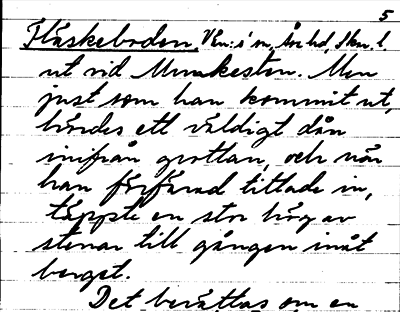 5
Fläskeboden, Vån: s'n, Års hd, Skar. l.
ut vid Munkesten. Men
just som han kommit ut,
hördes ett väldigt dån
inifrån grottan, och när
han förfärad tittade in,
täppte en stor hög av
stenar till gången inåt
berget.
Det berättas om en